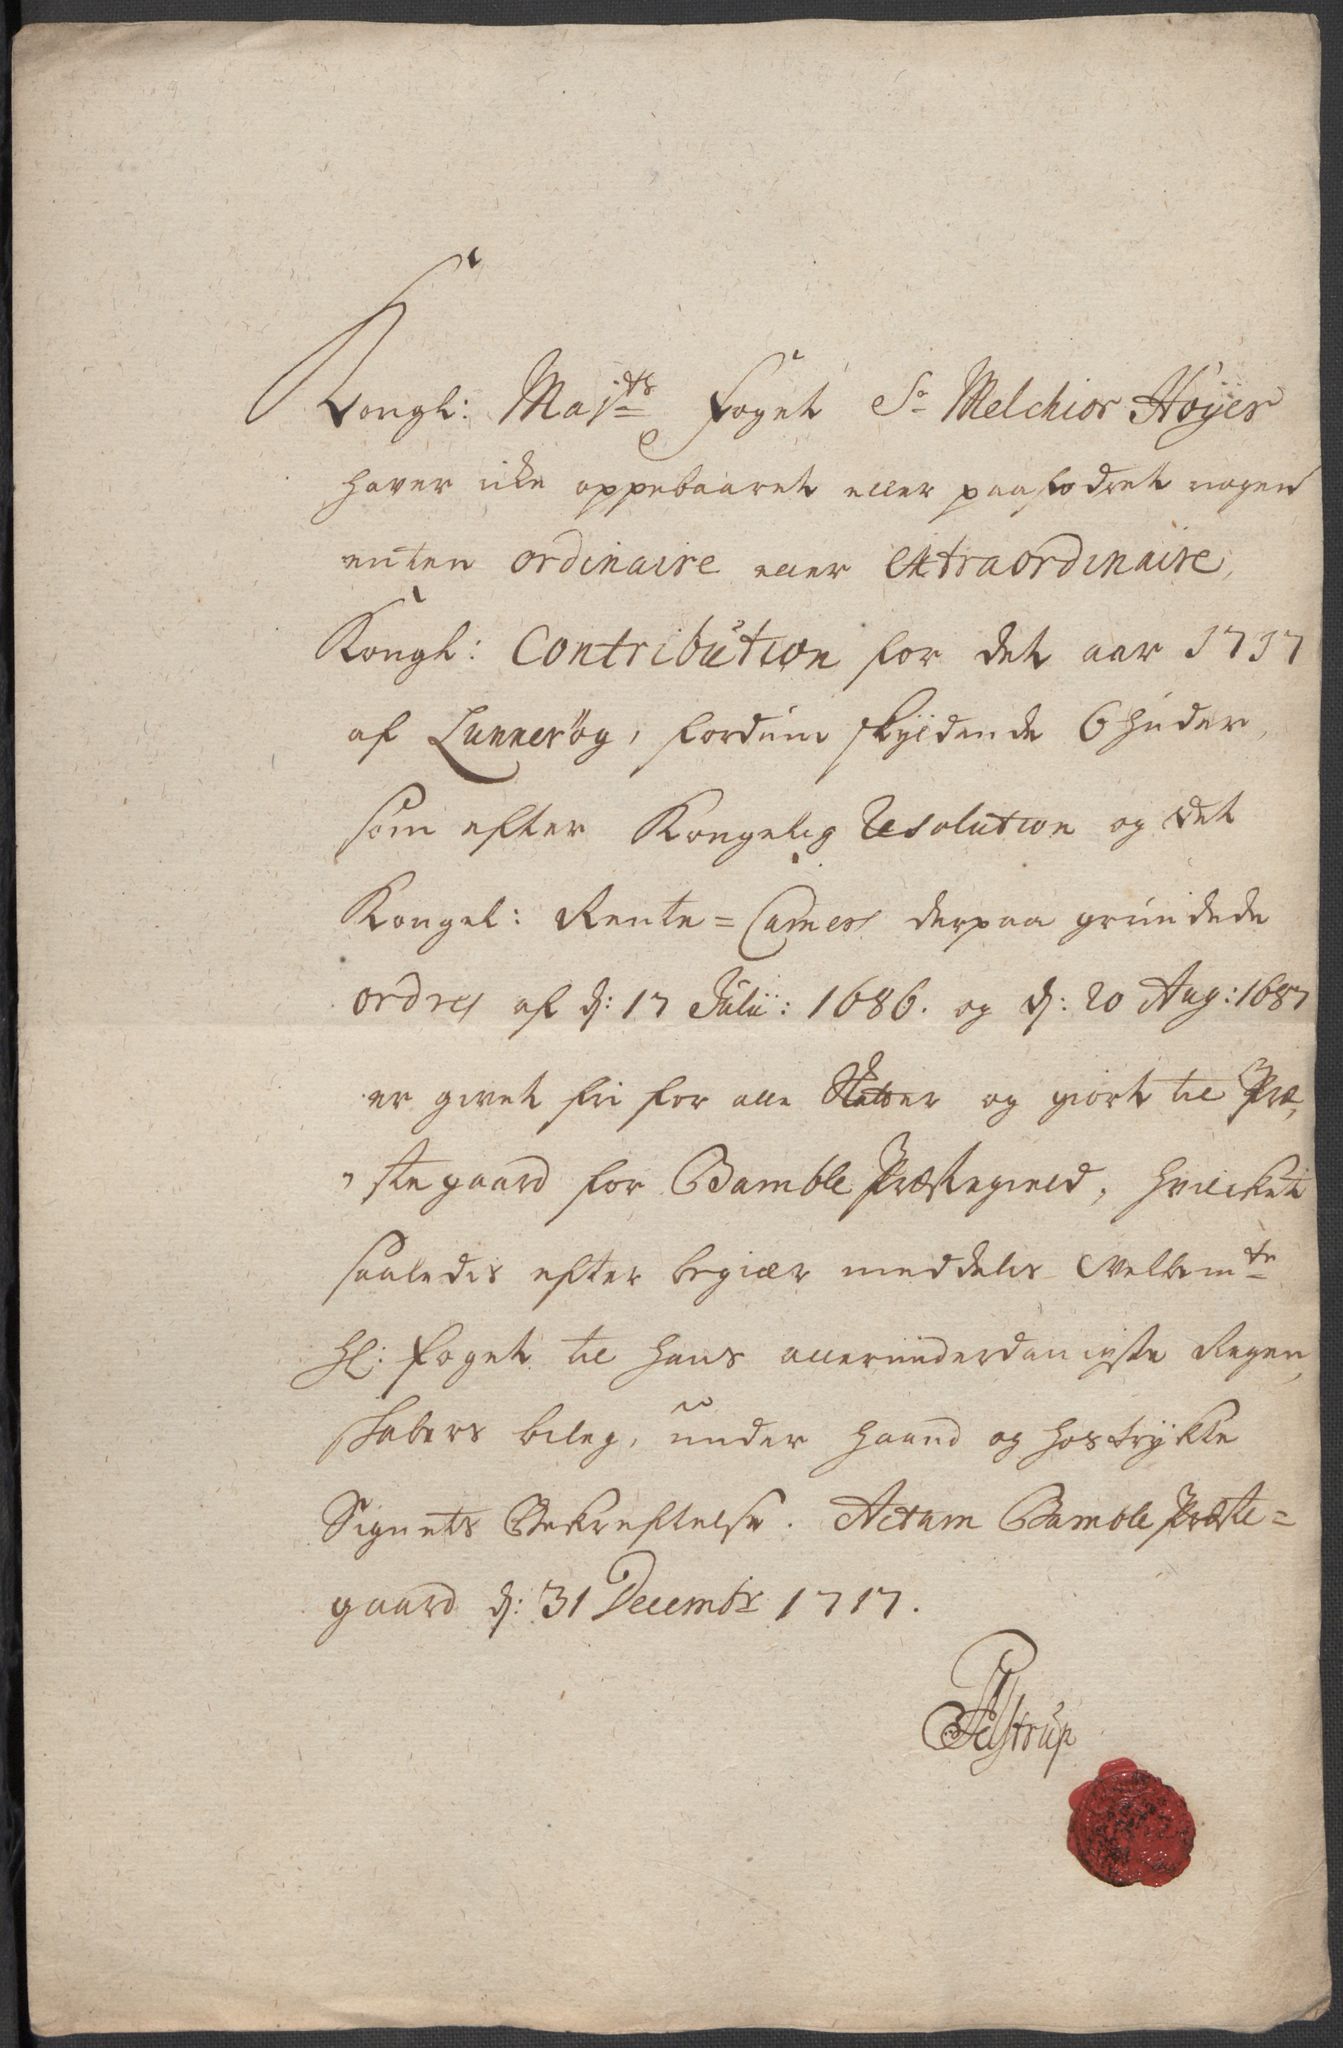 Kongl: Maj:ts Foget Sr Melchior Høyer
haver icke oppebaaret eller paafodret nogen
enten ordinaire eller extraordinaire
Kongl: Contribution for det aar 1717
af Lunnerøg, fordum skyldende 6 huder,
som efter Kongelig Resolution og det
Kongel: Rente=Camers derpaa grundede
ordres af d: 17 Julii: 1686. og d: 20 Aug: 1687
er givet fri for alle Skatter og giort til Præ,
,stegaard for Bamble Præstegield, hvilcket
saaledis efter begiær meddelis Velbemte
Hl: Foget til hans allerunderdanigste Regen,
skabers bileg, under haand og hostrykte
Signets Bekreftelse. Actum Bamble Præste=
gaard d: 31 Decembr 1717.
Pilstrup